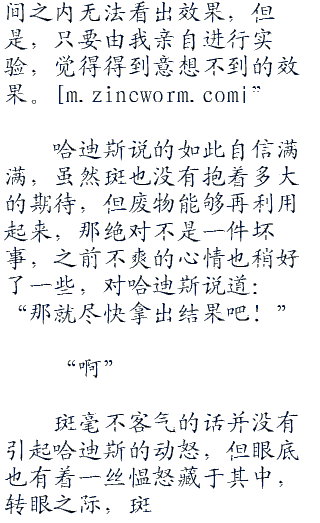 间之内无法看出效果，但
是，只要由我亲自进行实
验，觉得得到意想不到的效
果。[m.zincworm.com¡”
哈迪斯说的如此自信满
满，虽然斑也没有抱着多大
的期待，但废物能够再利用
起来，那绝对不是一件坏
事，之前不爽的心情也稍好
了一些，对哈迪斯说道：
“那就尽快拿出结果吧！”
“啊”
斑毫不客气的话并没有
引起哈迪斯的动怒，但眼底
也有着一丝愠怒藏于其中，
转眼之际，斑